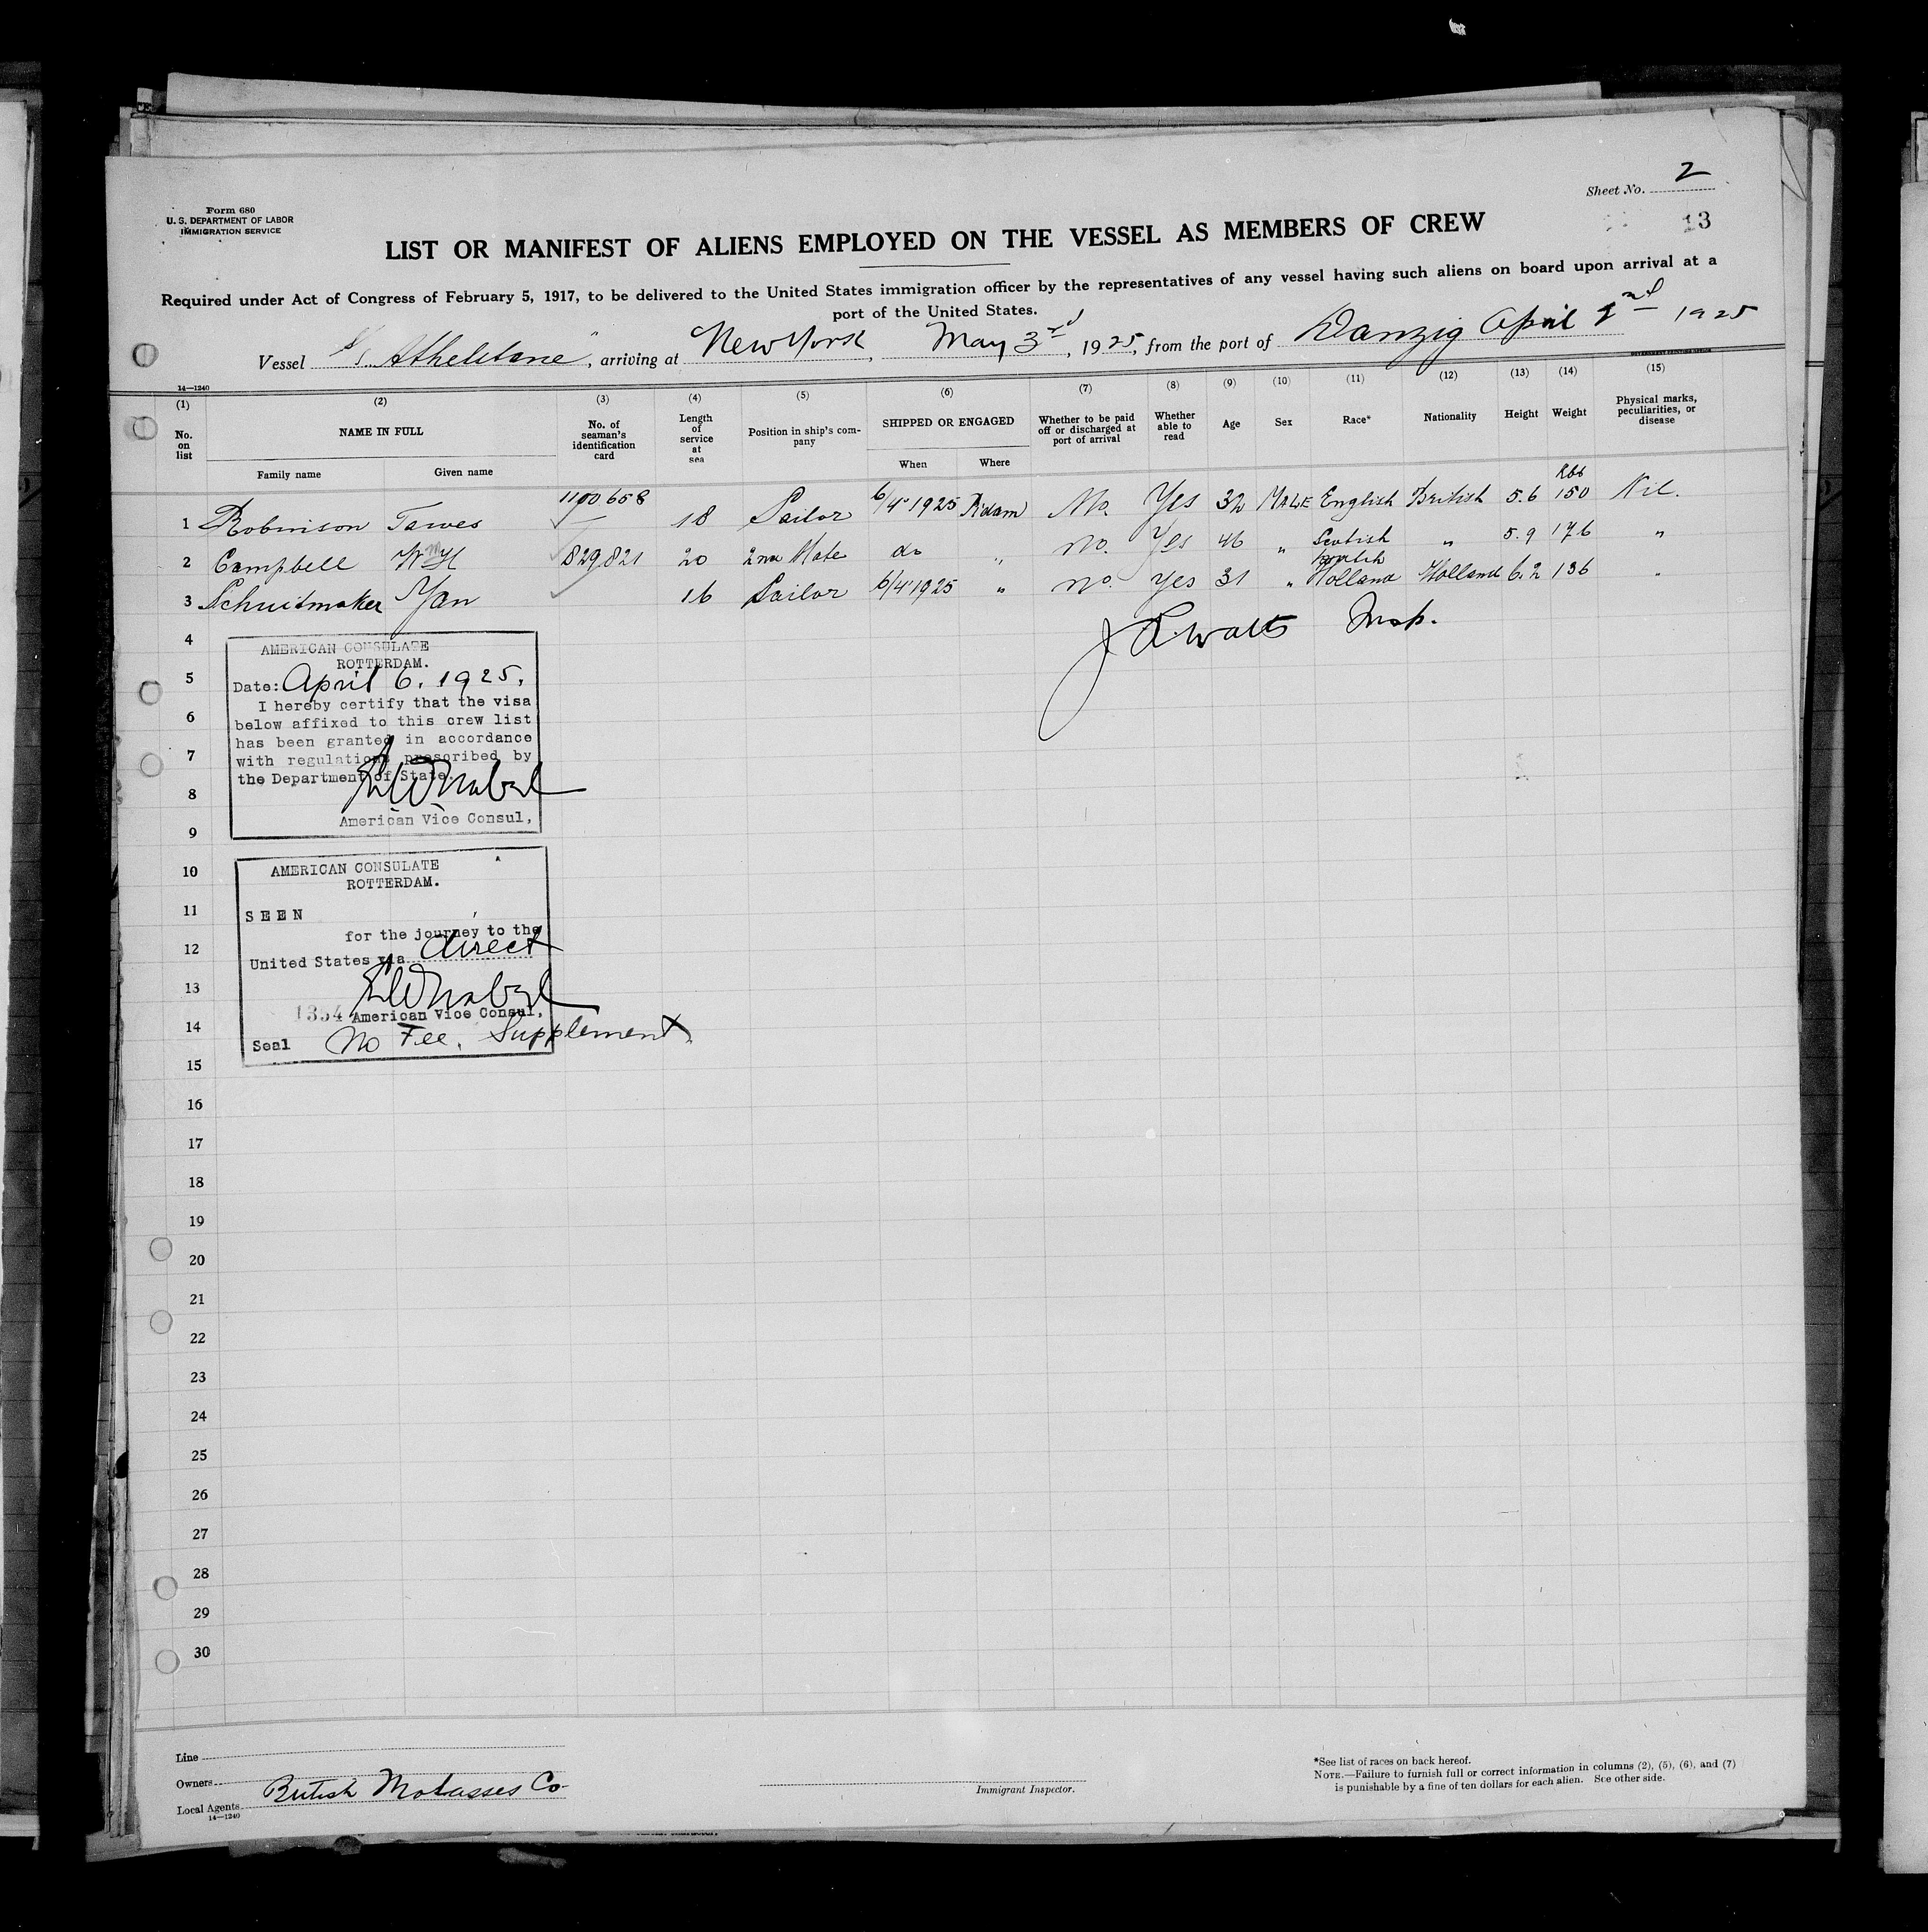 Sheet No. 2
13
Form 680
U. S. DEPARTMENT OF LABOR
IMMIGRATION SERVICE
LIST OR MANIFEST OF ALIENS EMPLOYED ON THE VESSEL AS MEMBERS OF CREW
Required under Act of Congress of February 5, 1917, to be delivered to the United States immigration officer by the representatives of any vessel having such aliens on board upon arrival at a
port of the United States.
Vessel "Athelstane", arriving at New York, May 3rd, 1925, from the port of Danzig April 2nd 1925
14—1240
(1) (2) (3) (4) (5) (6) (7) (8) (9) (10) (11) (12) (13) (14) (15)
No. on list NAME IN FULL No. of seaman's identification card Length of service at sea Position in ship's company SHIPPED OR ENGAGED Whether to be paid off or discharged at port of arrival Whether able to read Age Sex Race* Nationality Height Weight Physical marks, peculiarities, or disease
Family name Given name When Where
1 Robinson Tawes 1100658 18 Sailor 6/4 1925 R'dam No. Yes 32 MALE English British 5.6 150 Nil.
2 Campbell Wm H 829821 20 2nd Mate do " No. Yes 46 " Scotish " 5.9 176 "
3 Schuitmaker Yan 16 Sailor 6/4 1925 " No. Yes 31 " Holland Holland 6.2 136 "
Insp.
4
AMERICAN CONSULATE
ROTTERDAM.
5
Date: April 6, 1925.
I hereby certify that the visa
6
below affixed to this crew list
has been granted in accordance
7
with regulations prescribed by
the Department of State.
8
American Vice Consul,
9
10
AMERICAN CONSULATE
ROTTERDAM.
11
SEEN
for the journey to the
12
United States via direct
13
1354 American Vice Consul,
14
Seal No Fee. Supplement
15
16
17
18
19
20
21
22
23
24
25
26
27
28
29
30
Line
Owners
Local Agents British Molasses Co.
14—1240
Immigrant Inspector.
*See list of races on back hereof.
NOTE.—Failure to furnish full or correct information in columns (2), (5), (6), and (7)
is punishable by a fine of ten dollars for each alien. See other side.